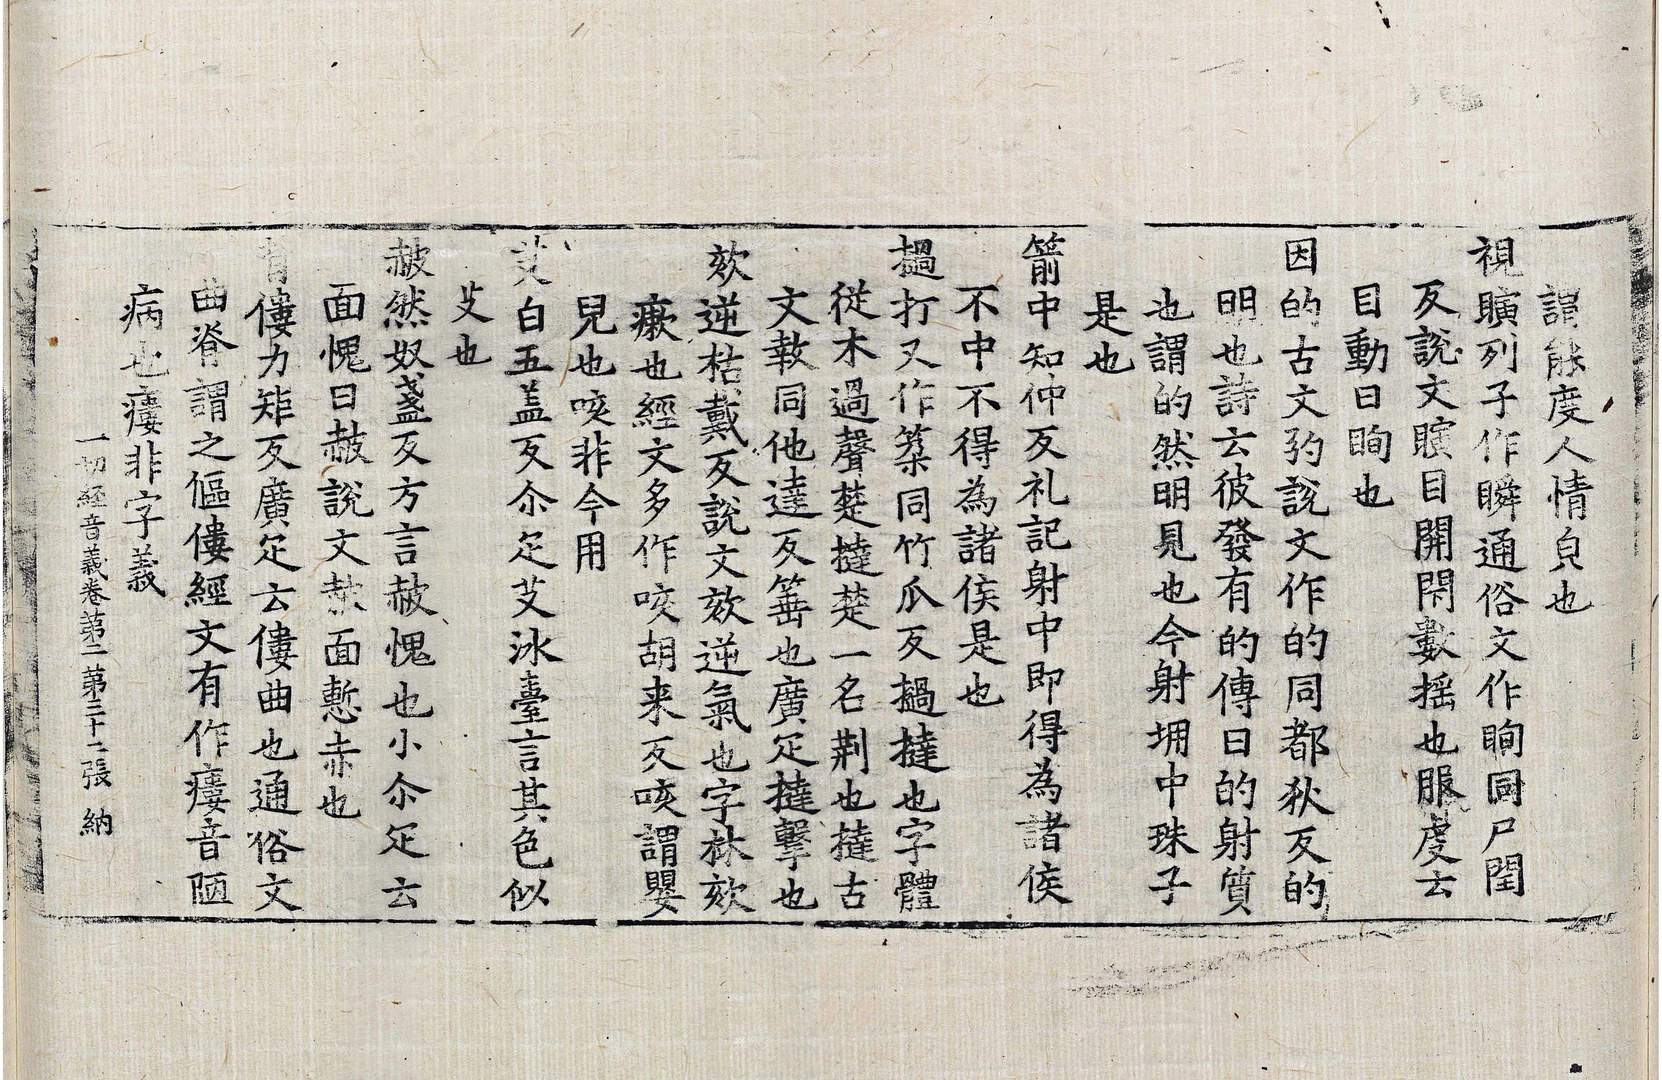 謂能度人情皃也
視瞚列子作瞬通俗文作眴同尸閏
反說文瞚目開閉數揺也服虔云
目動曰眴也
因的古文旳說文作的同都狄反的
明也詩云彼發有的傳曰的射質
也謂的然明見也今射堋中珠子
是也
箭中知仲反礼記射中即得為諸侯
不中不得為諸侯是也
撾打又作築同竹瓜反撾撻也字體
從木過聲楚撻楚一名荆也撻古
文㪇同他達反箠也廣疋撻擊也
欬逆枯戴反說文欬逆氣也字林欬
瘶也經文多作咳胡来反咳謂嬰
兒也咳非今用
艾白五盖反尒疋艾冰臺言其色似
艾也
赧然奴盞反方言赧愧也小尒疋云
面愧曰赧說文赧面慙赤也
有僂力矩反廣疋云僂曲也通俗文
曲脊謂之傴僂經文有作瘻音陋
病也瘻非字義
一切經音義卷第二 第三十二張 納